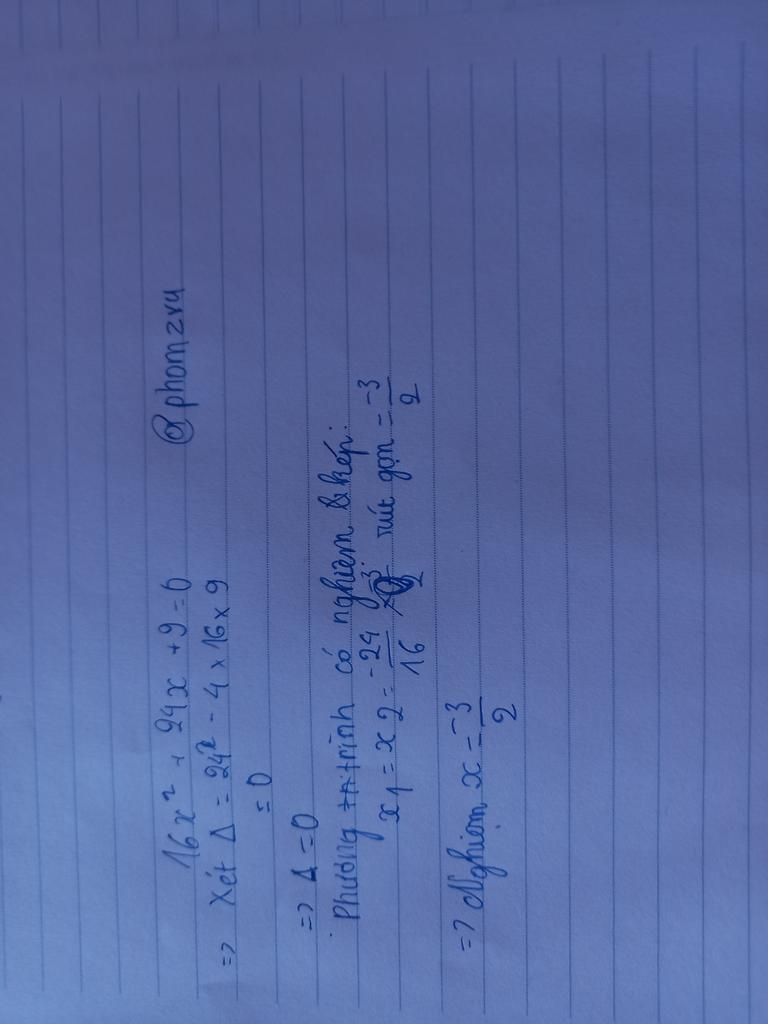 16x² + 24x + 9 = 0 @phomzvu
=> Xét Δ = 24² - 4 x 16 x 9
= 0
=> Δ = 0
Phương trình có nghiệm kép:
x1 = x2 = -24/16 rút gọn = -3/2
=> Nghiệm x = -3/2